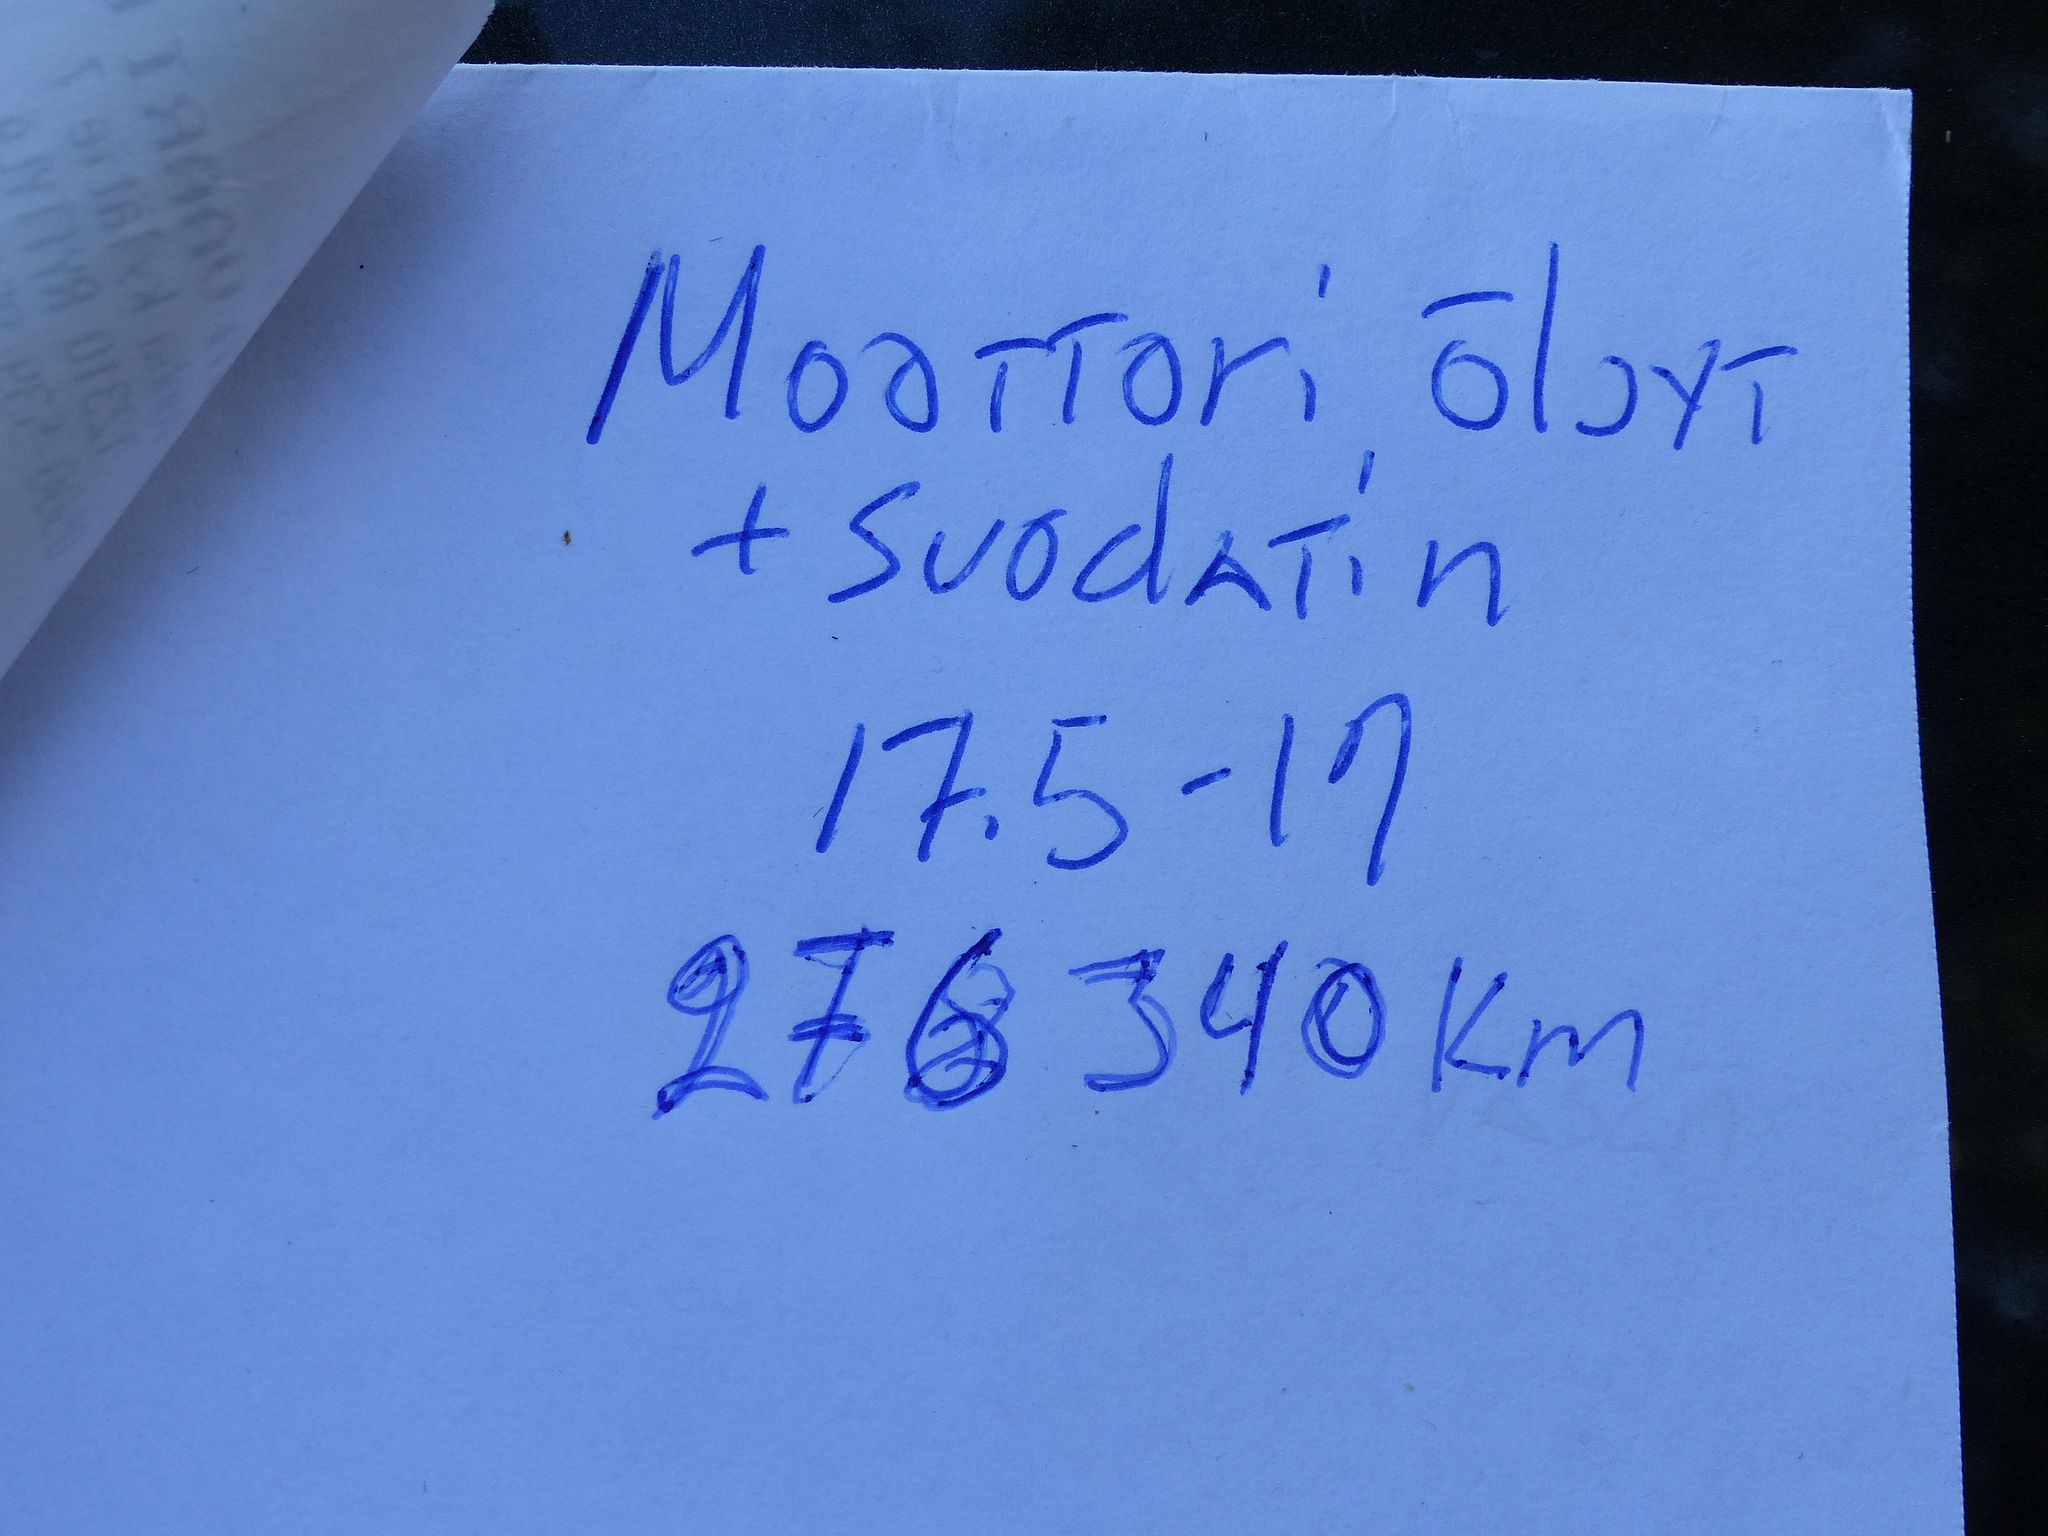 Moottori öljyt
+ suodatin
17.5-17
276 340 km